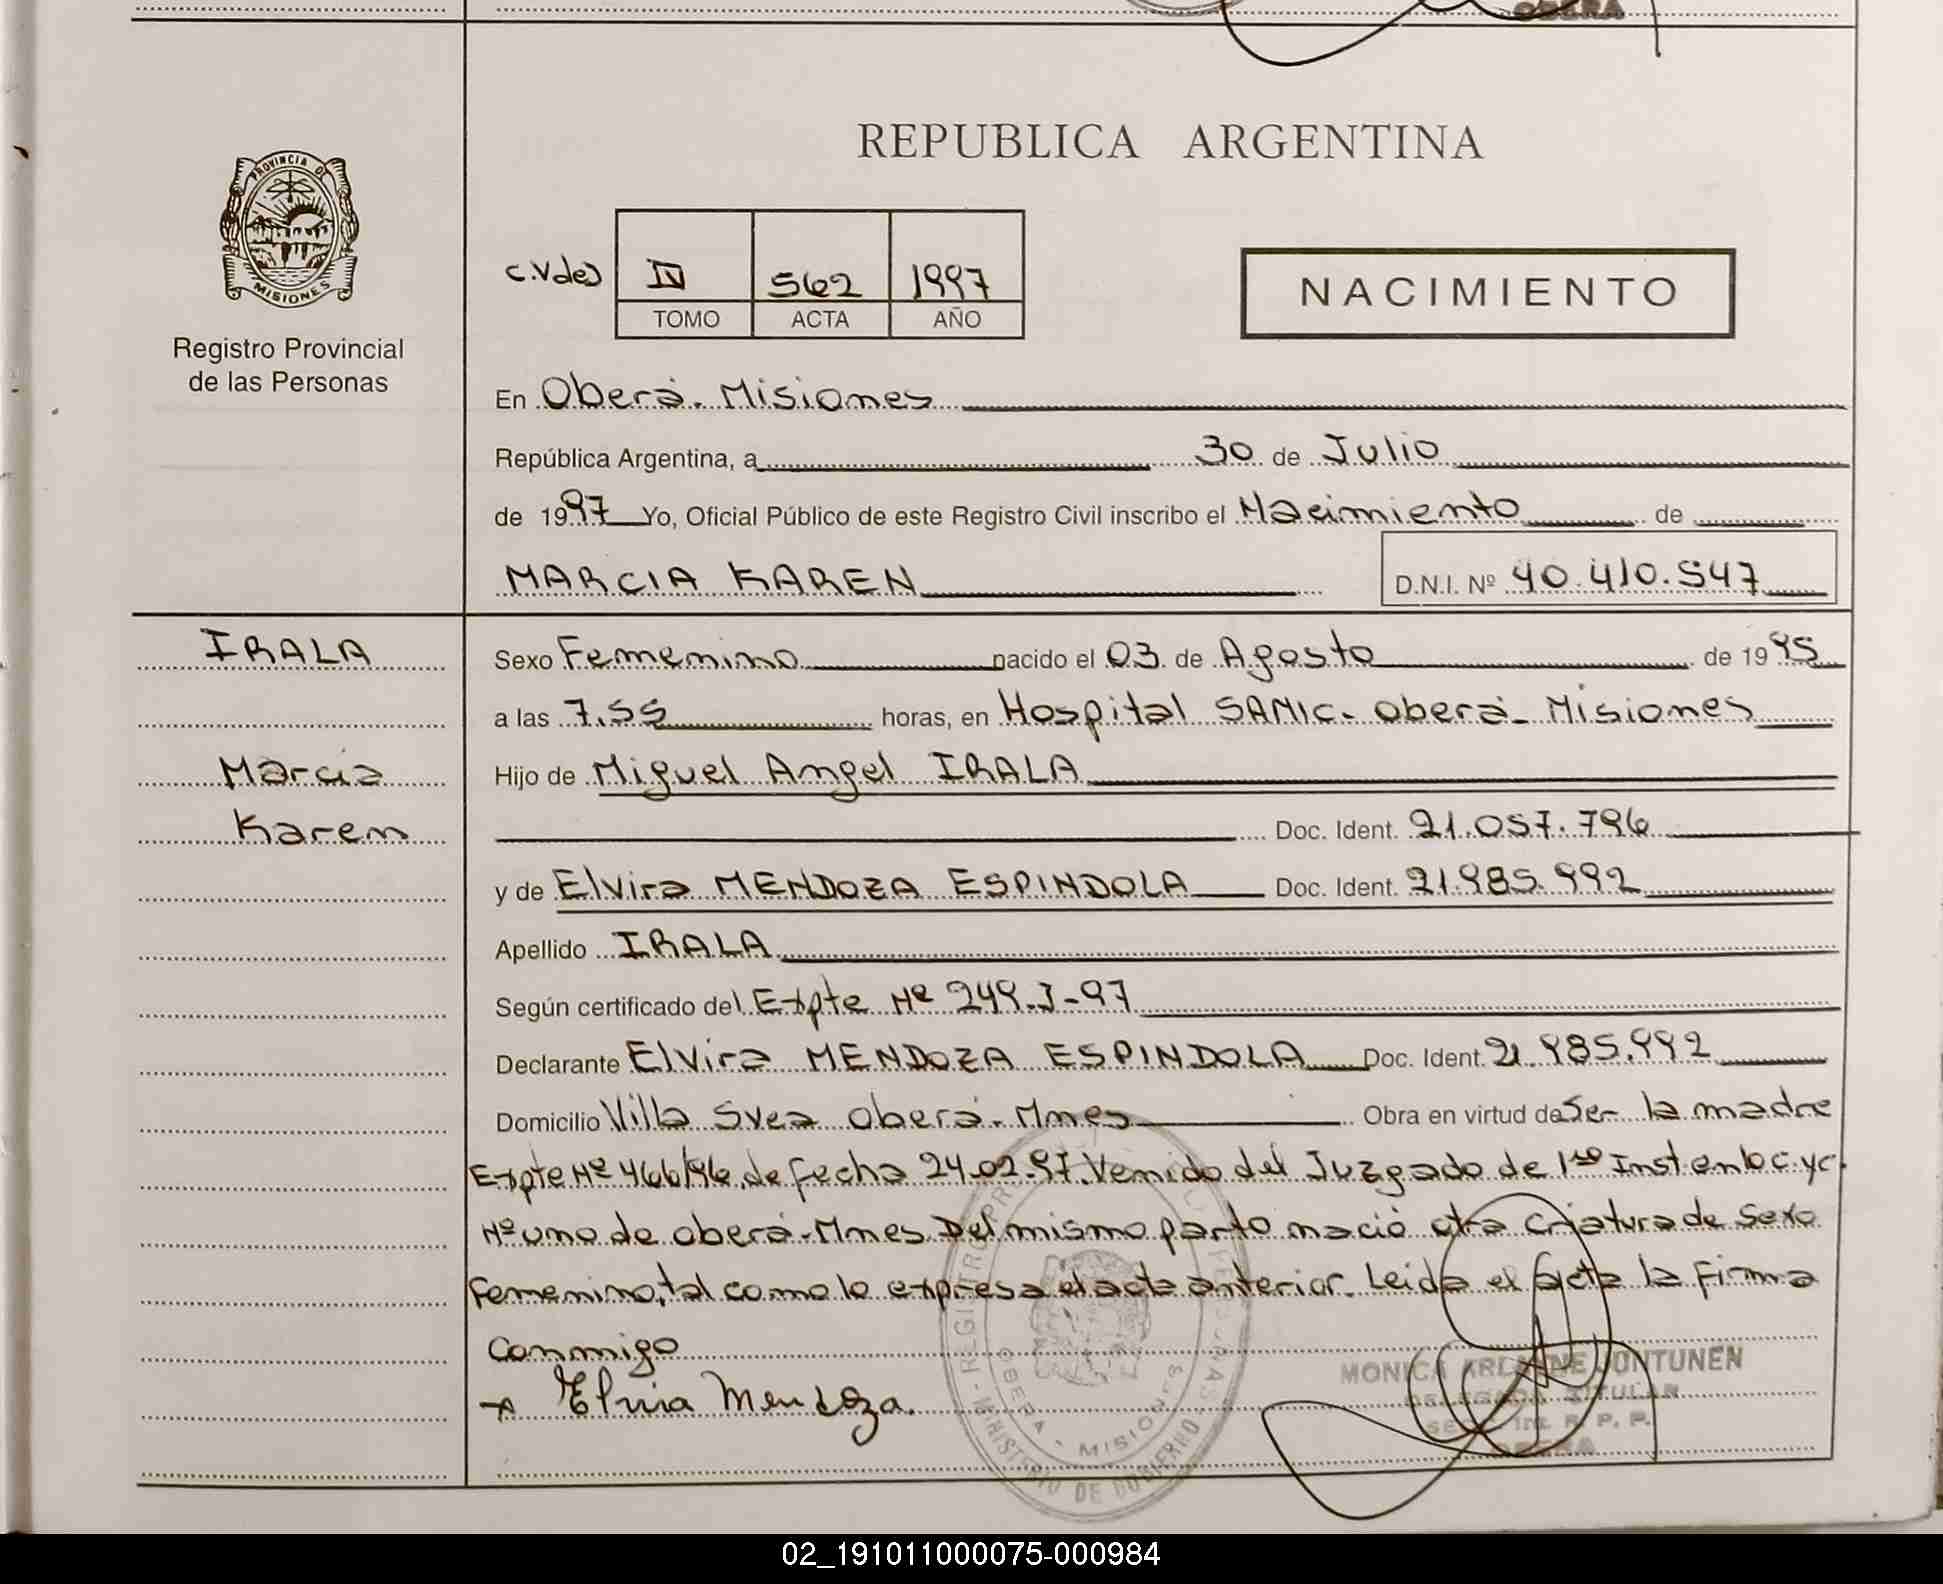 OBERA
PROVINCIA DE
MISIONES
Registro Provincial
de las Personas
REPUBLICA ARGENTINA
C.Vdes IV 562 1997
TOMO ACTA AÑO
NACIMIENTO
En Oberá. Misiones
República Argentina, a 30 de Julio
de 1997 Yo, Oficial Público de este Registro Civil inscribo el Nacimiento de
MARCIA KAREN D.N.I. Nº 40.410.547
IRALA
Marcia
Karen
Sexo Femenino nacido el 03 de Agosto de 1995
a las 7.55 horas, en Hospital SAMIC. Oberá. Misiones
Hijo de Miguel Angel IRALA
Doc. Ident. 21.057.796
y de Elvira MENDOZA ESPINDOLA Doc. Ident. 21.985.992
Apellido IRALA
Según certificado del Expte Nº 249.I-97
Declarante Elvira MENDOZA ESPINDOLA Doc. Ident. 21.985.992
Domicilio Villa Svea Oberá. Mnes Obra en virtud de Ser la madre
Expte Nº 466/96 de fecha 24.02.97. Venido del Juzgado de 1ra Inst en lo C. y C.
Nº uno de Oberá. Mnes. Del mismo parto nació otra criatura de Sexo
Femenino, tal como lo expresa el acta anterior. Leida el acta la firma
Conmigo
Elvira Mendoza.
MONICA ARLENNE JUNTUNEN
DELEGADA TITULAR
R. P. P.
OBERA
OBERA - MISIONES
MINISTERIO DE GOBIERNO
02_191011000075-000984